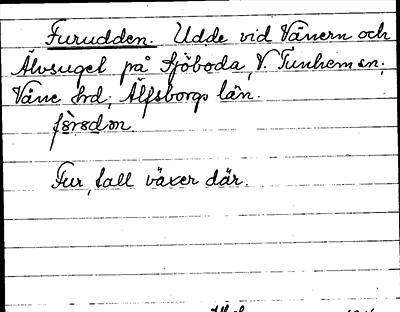 Furudden. Udde vid Vänern och
Älvsuget på Sjöboda, V. Tunhem sn,
Väne hrd, Älfsborgs län.
Fur, tall växer där.